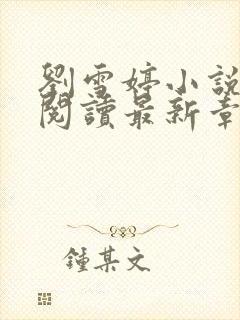 劉雪婷小說
閱讀最新章
鍾某文